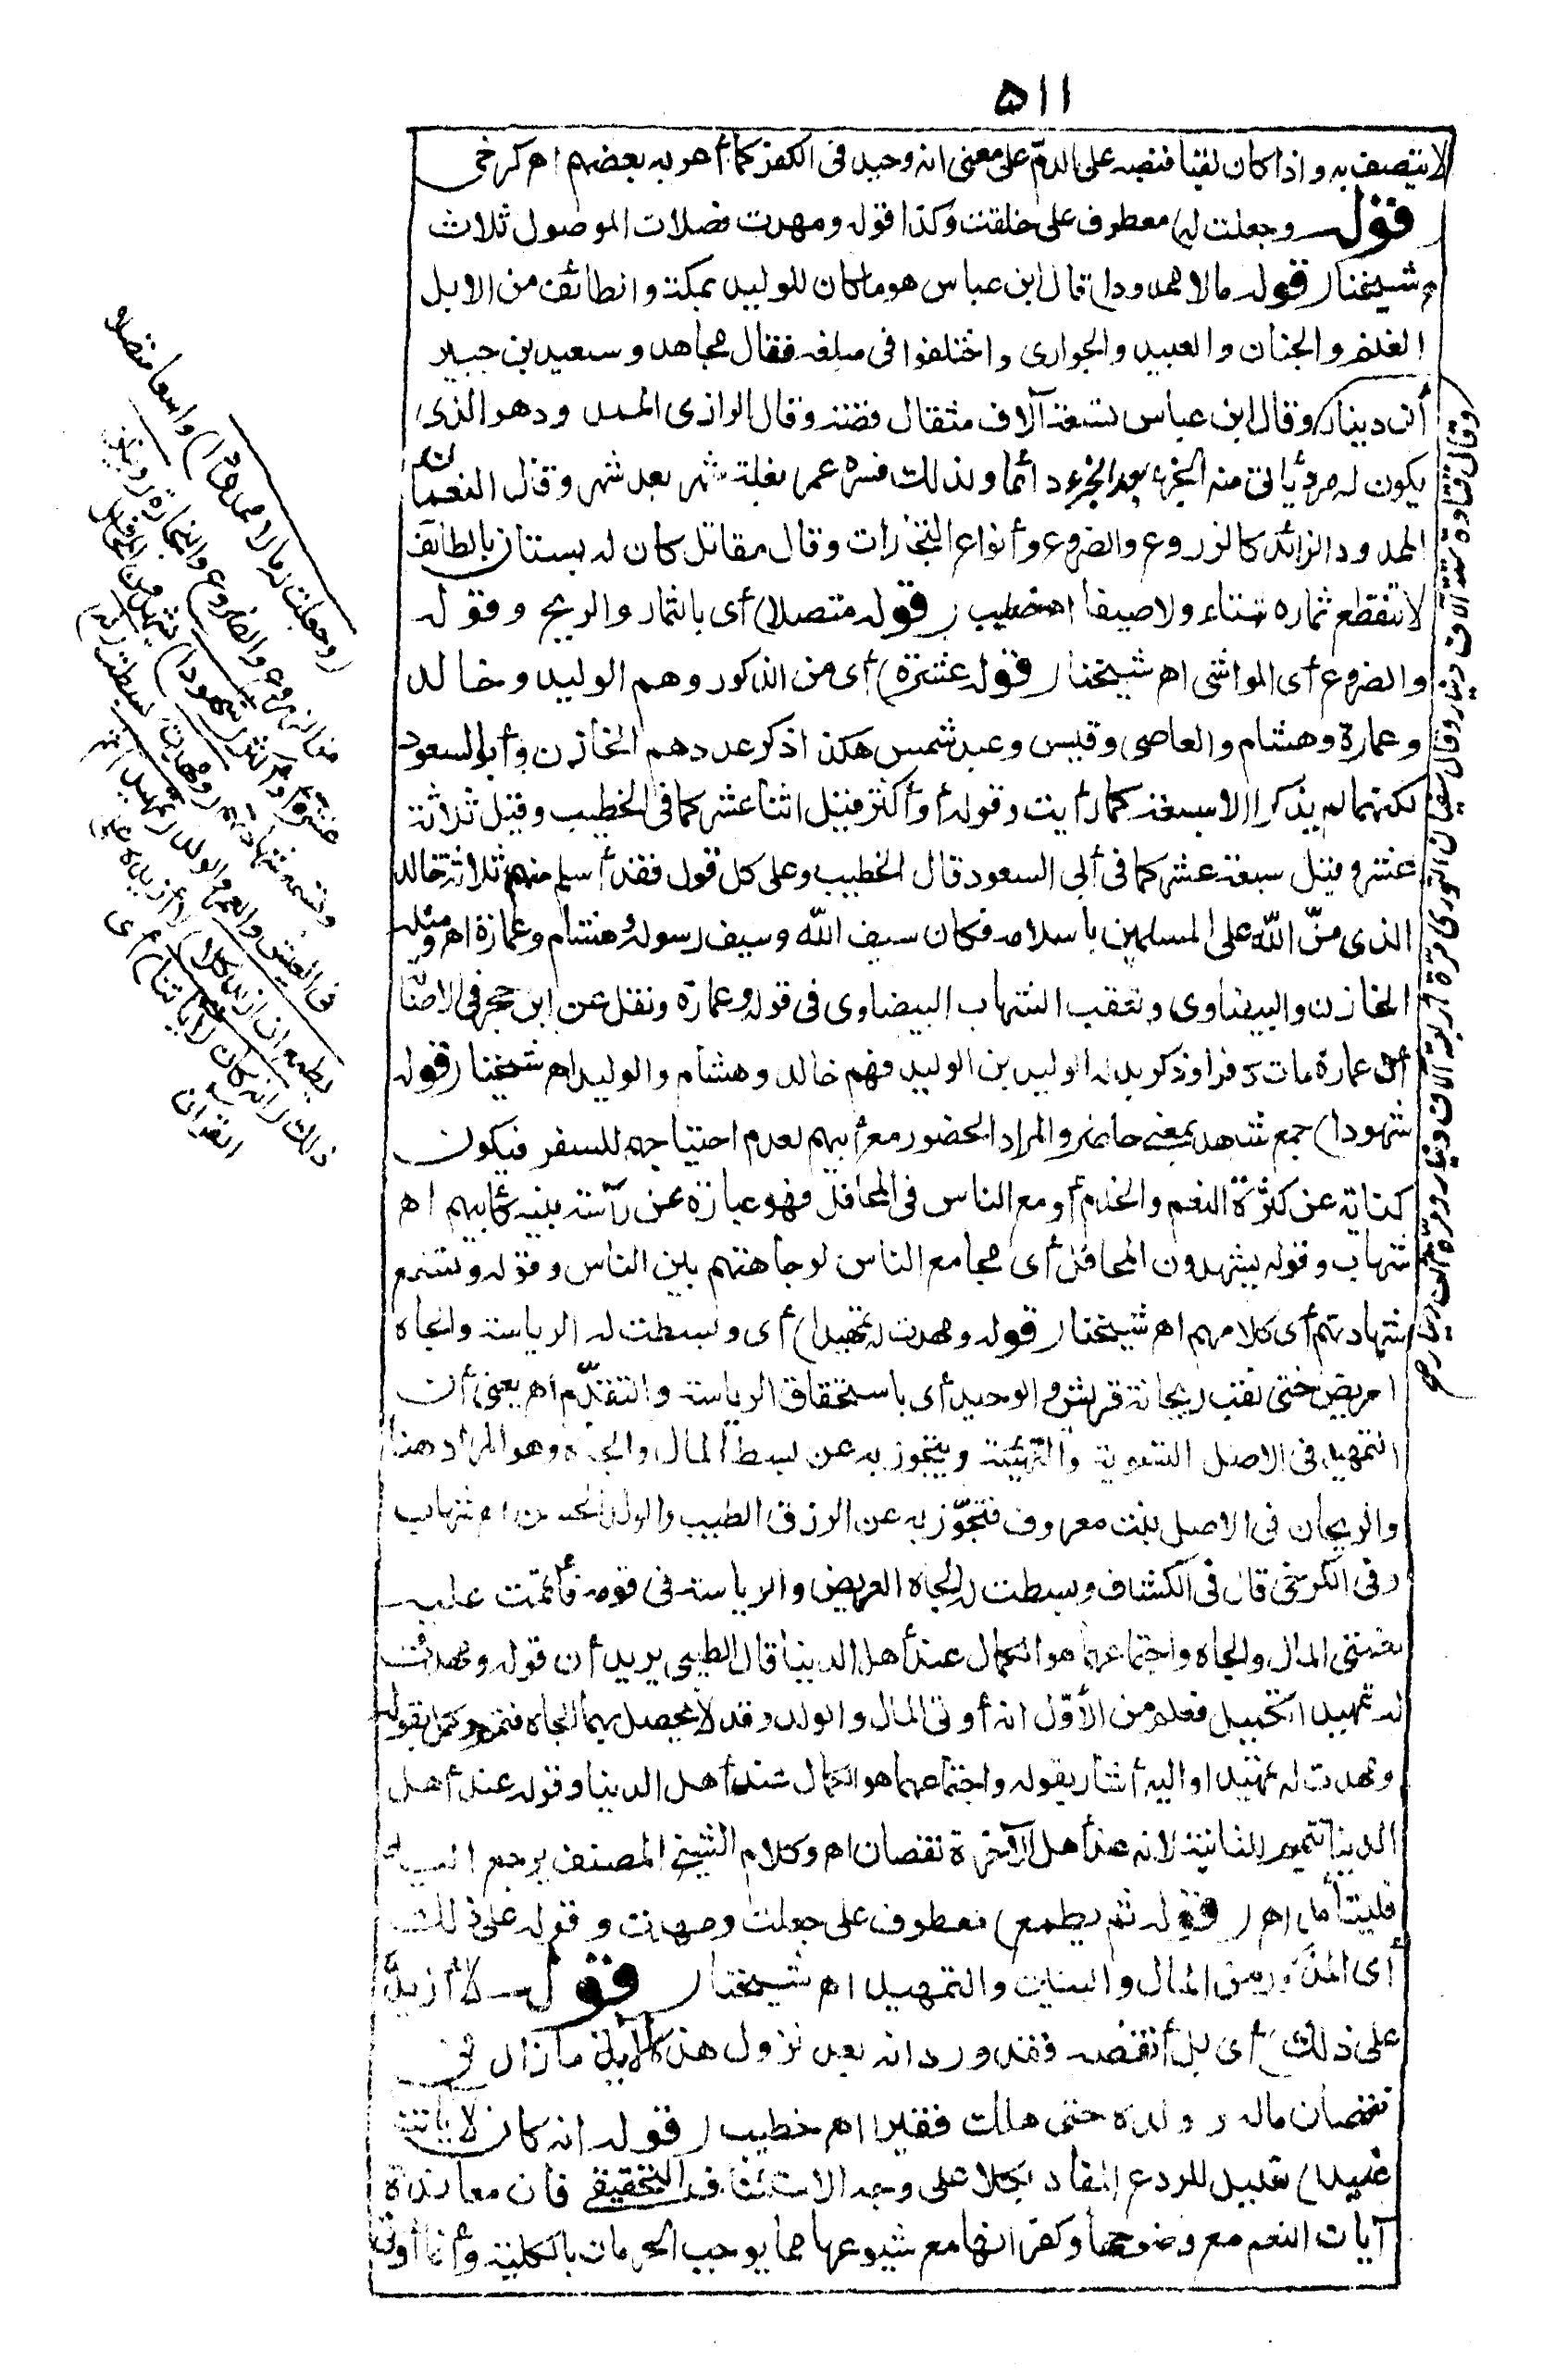 ٥١١
لا يتصف به واذا كان لقبا فنصبه على الذم على معنى انه وحيد فى الكفر كما أهو به بعضهم اه كرخى
قوله وجعلت له) معطوف على خلقت وكذا قوله ومهدت فصلات الموصول ثلاث
اه شيخنا (قوله مالا ممدودا) قال ابن عباس هو ما كان للوليد بمكة والطائف من الابل
الغنم والجنان والعبيد والجوارى واختلفوا فى مبلغه فقال مجاهد وسعيد بن جبير
ألف دينار وقال ابن عباس تسعة آلاف مثقال فضة وقال الرازى الممدود هو الذى
يكون له مدد يأتى منه الجزء بعد الجزء دائما ولذلك فسره عمر بغلة شهر بعد شهر وقال النعمان
الممدود الزائد كالزروع والضروع وأنواع التجارات وقال مقاتل كان له بستان بالطائف
لا تنقطع ثماره شتاء ولا صيفا اه خطيب (قوله متصلا) أى بالثمار والربح وقوله
والضروع أى المواشى اه شيخنا (قوله عشرة) أى من الذكور وهم الوليد وخالد
وعمارة وهشام والعاصى وقيس وعبد شمس هكذا ذكر عددهم الخازن وأبو السعود
لكنهما لم يذكرا الا سبعة كما رأيت وقوله أو أكثر قيل اثنا عشر كما فى الخطيب وقيل ثلاثة
عشر وقيل سبعة عشر كما فى أبى السعود قال الخطيب وعلى كل قول فقد أسلم منهم ثلاثة خالد
الذى منّ الله على المسلمين باسلامه فكان سيف الله وسيف رسوله وهشام وعمارة اه ومثله
الخازن والبيضاوى وتعقب الشهاب البيضاوى فى قوله وعمارة ونقل عن ابن حجر فى الاصابة
أن عمارة مات كافرا وذكر بدله الوليد بن الوليد فهم خالد وهشام والوليد اه شيخنا (قوله
شهودا) جمع شاهد بمعنى حاضر والمراد الحضور مع أبيهم لعدم احتياجهم للسفر فيكون
كناية عن كثرة النعم والخدم أو مع الناس فى المحافل فهو عبارة عن رآسة بنيه كأبيهم اه
شهاب وقوله يشهدون المحافل أى مجامع الناس لوجاهتهم بين الناس وقوله وتسمع
شهادتهم أى كلامهم اه شيخنا (قوله ومهدت له تمهيدا) أى وبسطت له الرياسة والجاه
العريض حتى لقب ريحانة قريش والوحيد أى باستحقاق الرياسة والتقدّم اه يعنى أن
التمهيد فى الاصل التسوية والتهيئة ويتجوز به عن بسط المال والجاه وهو المراد هنا
والريحان فى الاصل بنت معروف فتجوّز به عن الرزق الطيب والولد الحسن اه شهاب
وفى الكرخى قال فى الكشاف وبسطت له الجاه العريض والرياسة فى قومه فأتممت عليه
نعمتى المال والجاه واجتماعهما هو الكمال عند أهل الدنيا قال الطيبى يريد أن قوله ومهدت
له تمهيدا تكميل فعلم من الأوّل انه أوتى المال والولد وقد لا يحصل بهما الجاه فتمم وكمل بقوله
ومهدت له تمهيدا واليه أشار بقوله واجتماعهما هو الكمال عند أهل الدنيا وقوله عند أهل
الدنيا تتميم للثانية لانه عند أهل الآخرة نقصان اه وكلام الشيخ المصنف يرجع اليه
فليتأمل اه (قوله ثم يطمع) معطوف على جعلت ومهدت وقوله على ذلك
أى المذكور من المال والبنين والتمهيد اه شيخنا (قوله لا أزيده
على ذلك) أى بل أنقصه فقد ورد انه بعد نزول هذه الآية ما زال فى
نقصان ماله وولده حتى هلك فقيرا اه خطيب (قوله انه كان لآياتنا
عنيدا) تعليل للردع المفاد بكلا على وجه الاستئناف التحقيقى فان معاندة
آيات النعم مع وضوحها وكفرانها مع شيوعها مما يوجب الحرمان بالكلية وانما أوتى
وقال قتادة ستة آلاف دينار وقال سفيان الثورى مرة أربعة آلاف دينار ومرة ألف دينار صح
(وجعلت له مالا ممدودا) واسعا متصلا
من الزروع والضروع والتجارة (وبنين)
عشرة أو أكثر (شهودا) يشهدون المحافل
وتسمع شهادتهم (ومهدت) بسطت (له)
فى العيش والعمر والولد (تمهيدا ثم
يطمع ان أزيد كلا) لا أزيده على
ذلك (انه كان لآياتنا) أى
القرآن